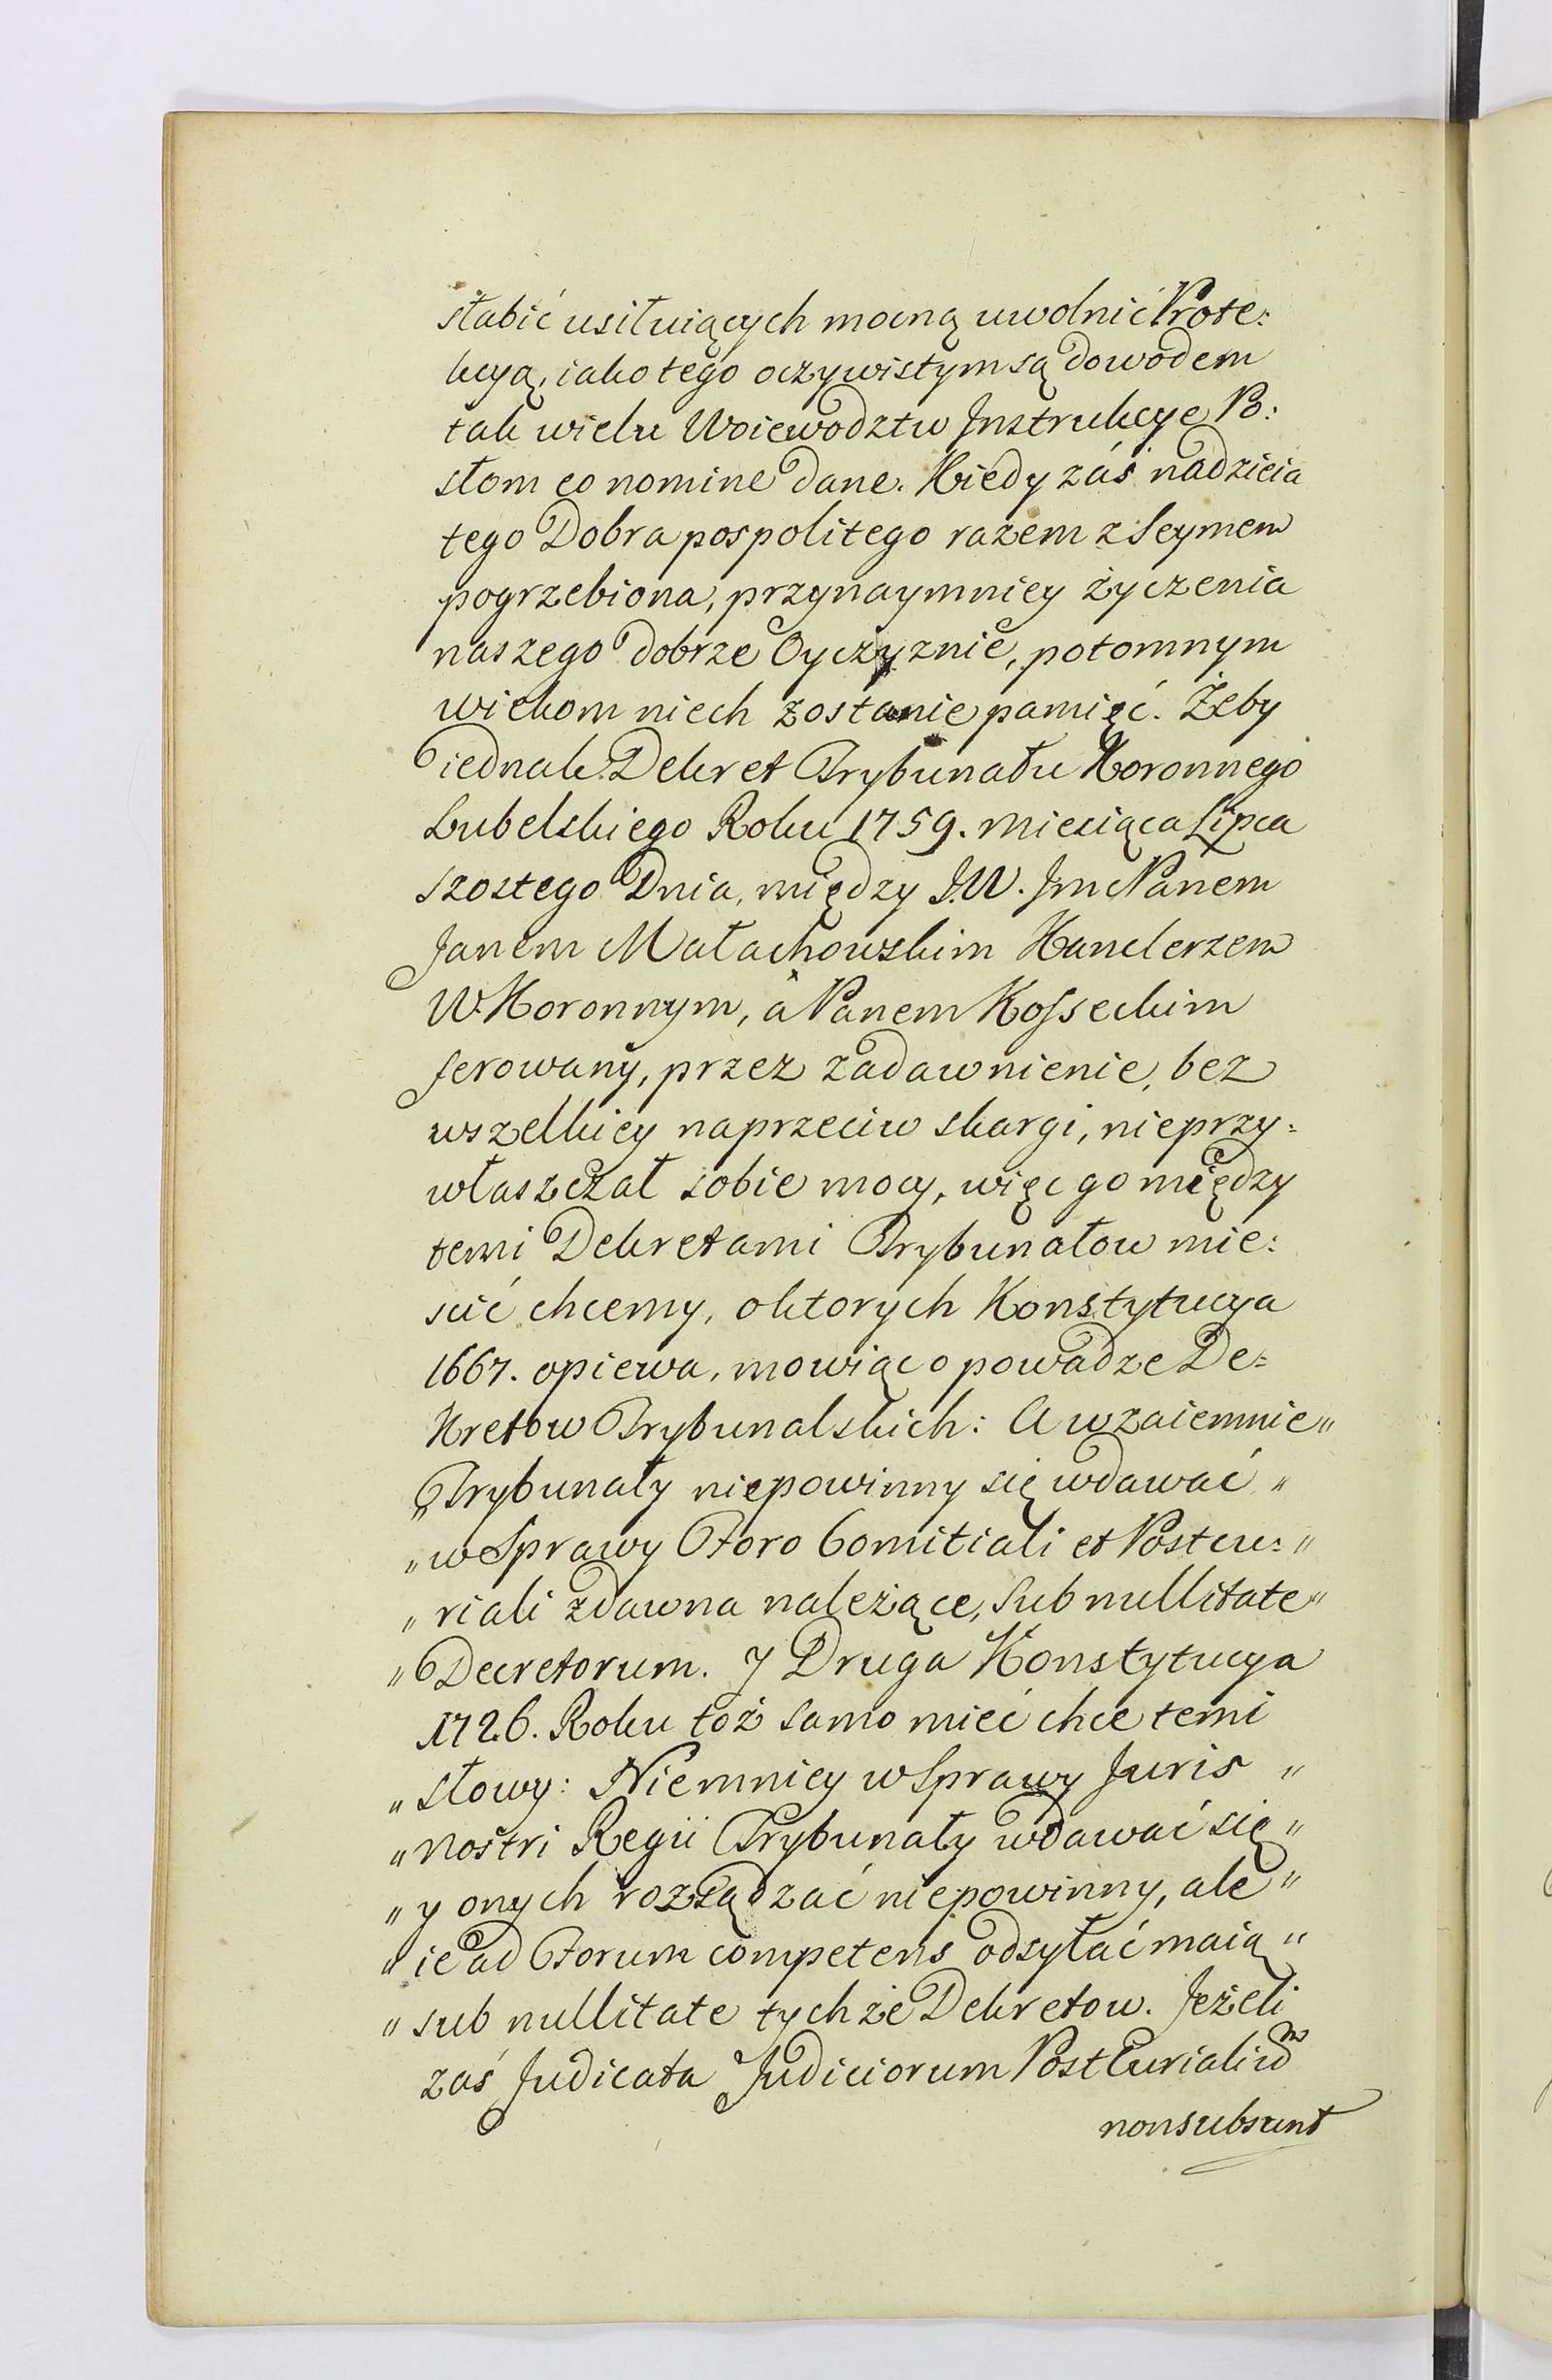 słabić usiłuiących mocną uwolnić Prote:
kcyą, iako tego oczywistym są dowodem
tak wielu Woiewodztw Jnstrukcye Po:
słom eo nomine dane. Kiedy záś nadzieia
tego Dobra pospolitego razem z Seymem
pogrzebiona, przynaymniey życzenia
naszego dobrze Oyczyznie, potomnym
wiekom niech zostanie pamięć. Żeby
iednak Dekret Trybunału Koronnego
Lubelskiego Roku 1759. Miesiąca Lipca
szostego Dnia, między J.W. Jm Panem
Janem Małachowskim Kanclerzem
W. Koronnym, à Panem Kosseckim
ferowany, przez zadawnienie, bez
wszelkiey naprzeciw skargi, nieprzy:
właszczał sobie mocy, więc go między
temi Dekretami Trybunałow mie:
scić chcemy, o ktorych Konstytucya
1667. opiewa, mowiąc o powadze De=
Kretow Trybunalskich: A wzaiemnie„
„Trybunały niepowinny się wdawać „
„w Sprawy Foro Comitiali et Postcu: „
„riali zdawna należące, sub nullitate„
„Decretorum. Y Druga Konstytucya
1726. Roku toż samo mieć chce temi
„słowy: Niemniey w Sprawy Juris „
„Nostri Regii Trybunały wdawać się„
„y onych rozsądzać niepowinny, ale„
„ie ad Forum competens odsyłać maią„
„sub nullitate tychże Dekretow. Jeżeli
zaś Judicata Judiciorum PostCurialium
non subsunt